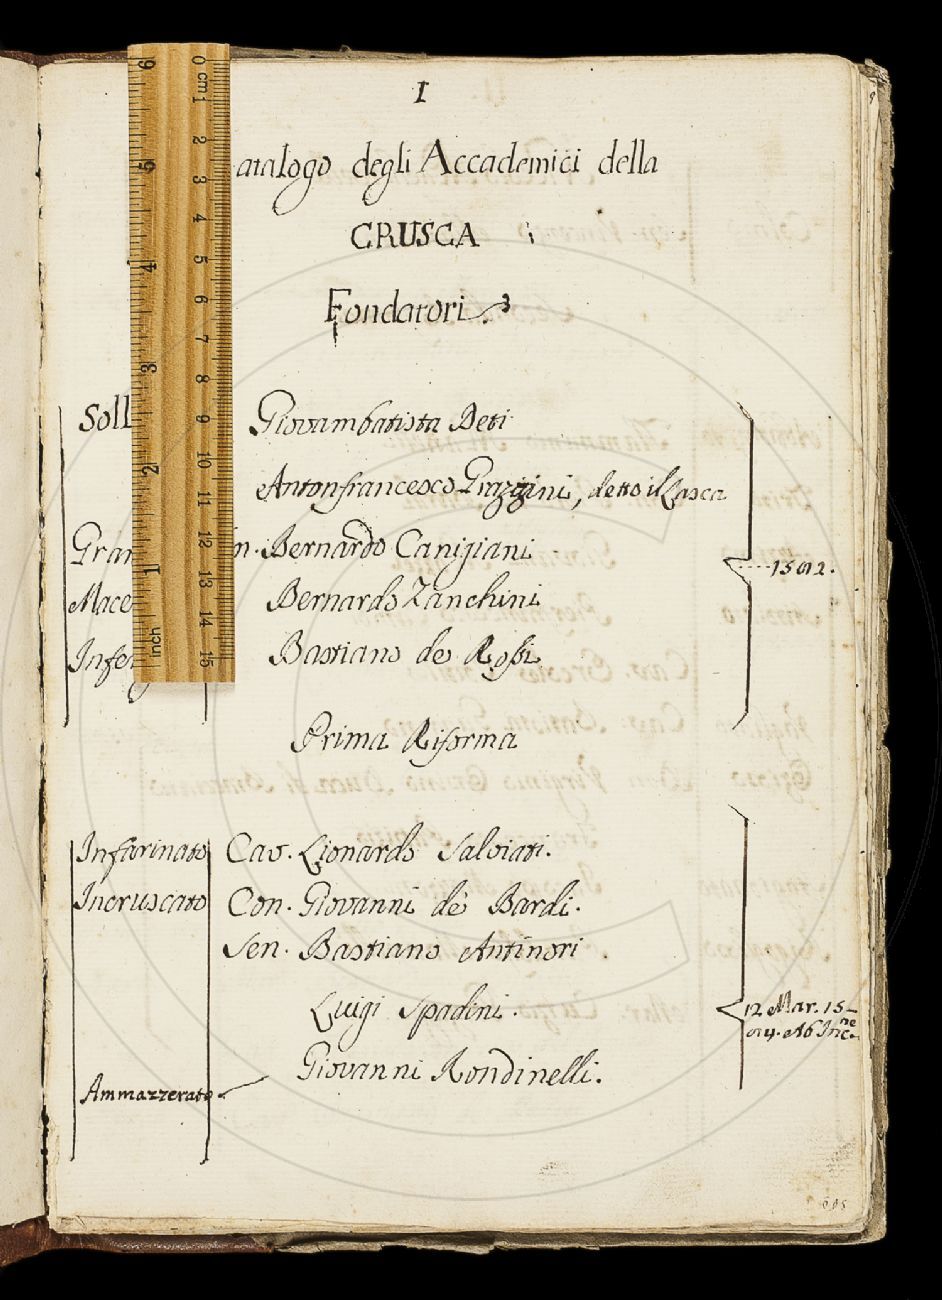 I
atalogo degli Accademici della
CRUSCA
Fondatori
Soll Giovambatista Deti
Antonfrancesco Grazzini, detto il Lasca
Gran n. Bernardo Canigiani
1582.
Mace Bernardo Zanchini
Infe Bastiano de Rossi
Prima Riforma
Infarinato Cav. Lionardo Salviati.
Incruscato Con. Giovanni de' Bardi.
Sen. Bastiano Antinori
Luigi Spadini.
12 Mar. 15-
84. Ab Inc.ne
Giovanni Rondinelli.
Ammazzerato
0 cm 1 2 3 4 5 6 7 8 9 10 11 12 13 14 15
inch 1 2 3 4 5 6